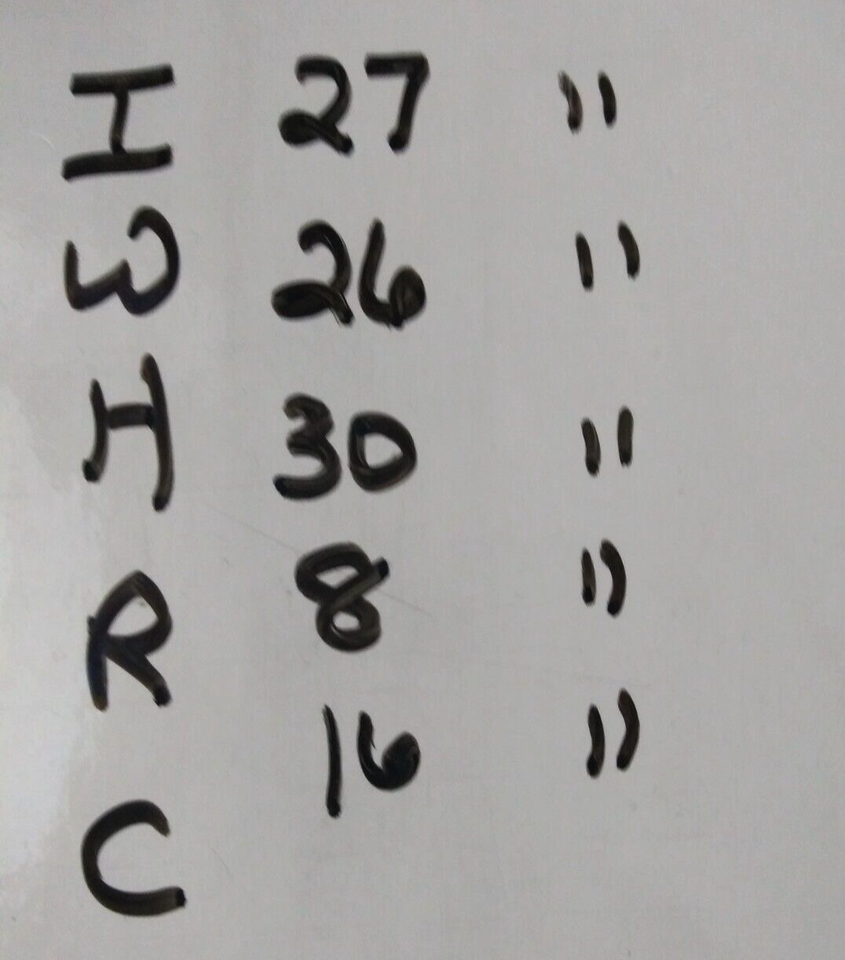 I 27 "
W 26 "
H 30 "
R 8 "
16 "
C